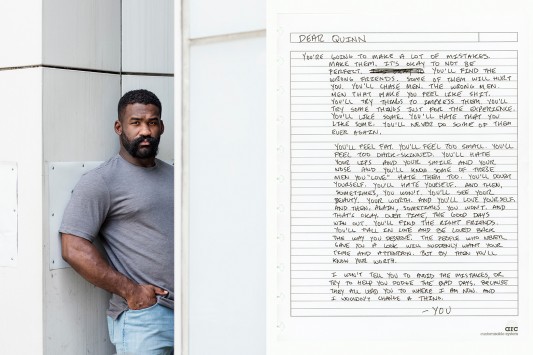 DEAR QUINN
YOU'RE GOING TO MAKE A LOT OF MISTAKES.
MAKE THEM. IT'S OKAY TO NOT BE
PERFECT. YOU'LL FIND THE
WRONG FRIENDS. SOME OF THEM WILL HURT
YOU. YOU'LL CHASE MEN. THE WRONG MEN.
MEN THAT MAKE YOU FEEL LIKE SHIT.
YOU'LL TRY THINGS TO IMPRESS THEM. YOU'LL
TRY SOME THINGS JUST FOR THE EXPERIENCE.
YOU'LL LIKE SOME. YOU'LL HATE THAT YOU
LIKE SOME. YOU'LL NEVER DO SOME OF THEM
EVER AGAIN.
YOU'LL FEEL FAT. YOU'LL FEEL TOO SMALL. YOU'LL
FEEL TOO DARK-SKINNED. YOU'LL HATE
YOUR LIPS AND YOUR SMILE AND YOUR
NOSE AND YOU'LL KNOW SOME OF THESE
MEN YOU "LOVE" HATE THEM TOO. YOU'LL DOUBT
YOURSELF. YOU'LL HATE YOURSELF. AND THEN,
SOMETIMES, YOU WON'T. YOU'LL SEE YOUR
BEAUTY. YOUR WORTH. AND YOU'LL LOVE YOURSELF.
AND THEN, AGAIN, SOMETIMES YOU WON'T. AND
THAT'S OKAY. OVER TIME, THE GOOD DAYS
WIN OUT. YOU'LL FIND THE RIGHT FRIENDS.
YOU'LL FALL IN LOVE AND BE LOVED BACK
THE WAY YOU DESERVE. THE PEOPLE WHO NEVER
GAVE YOU A LOOK WILL SUDDENLY WANT YOUR
TIME AND ATTENTION. BUT BY THEN YOU'LL
KNOW YOUR WORTH.
I WON'T TELL YOU TO AVOID THE MISTAKES, OR
TRY TO HELP YOU DODGE THE BAD DAYS. BECAUSE
THEY ALL LEAD YOU TO WHERE I AM NOW. AND
I WOULDN'T CHANGE A THING.
- YOU
arc
customizable system